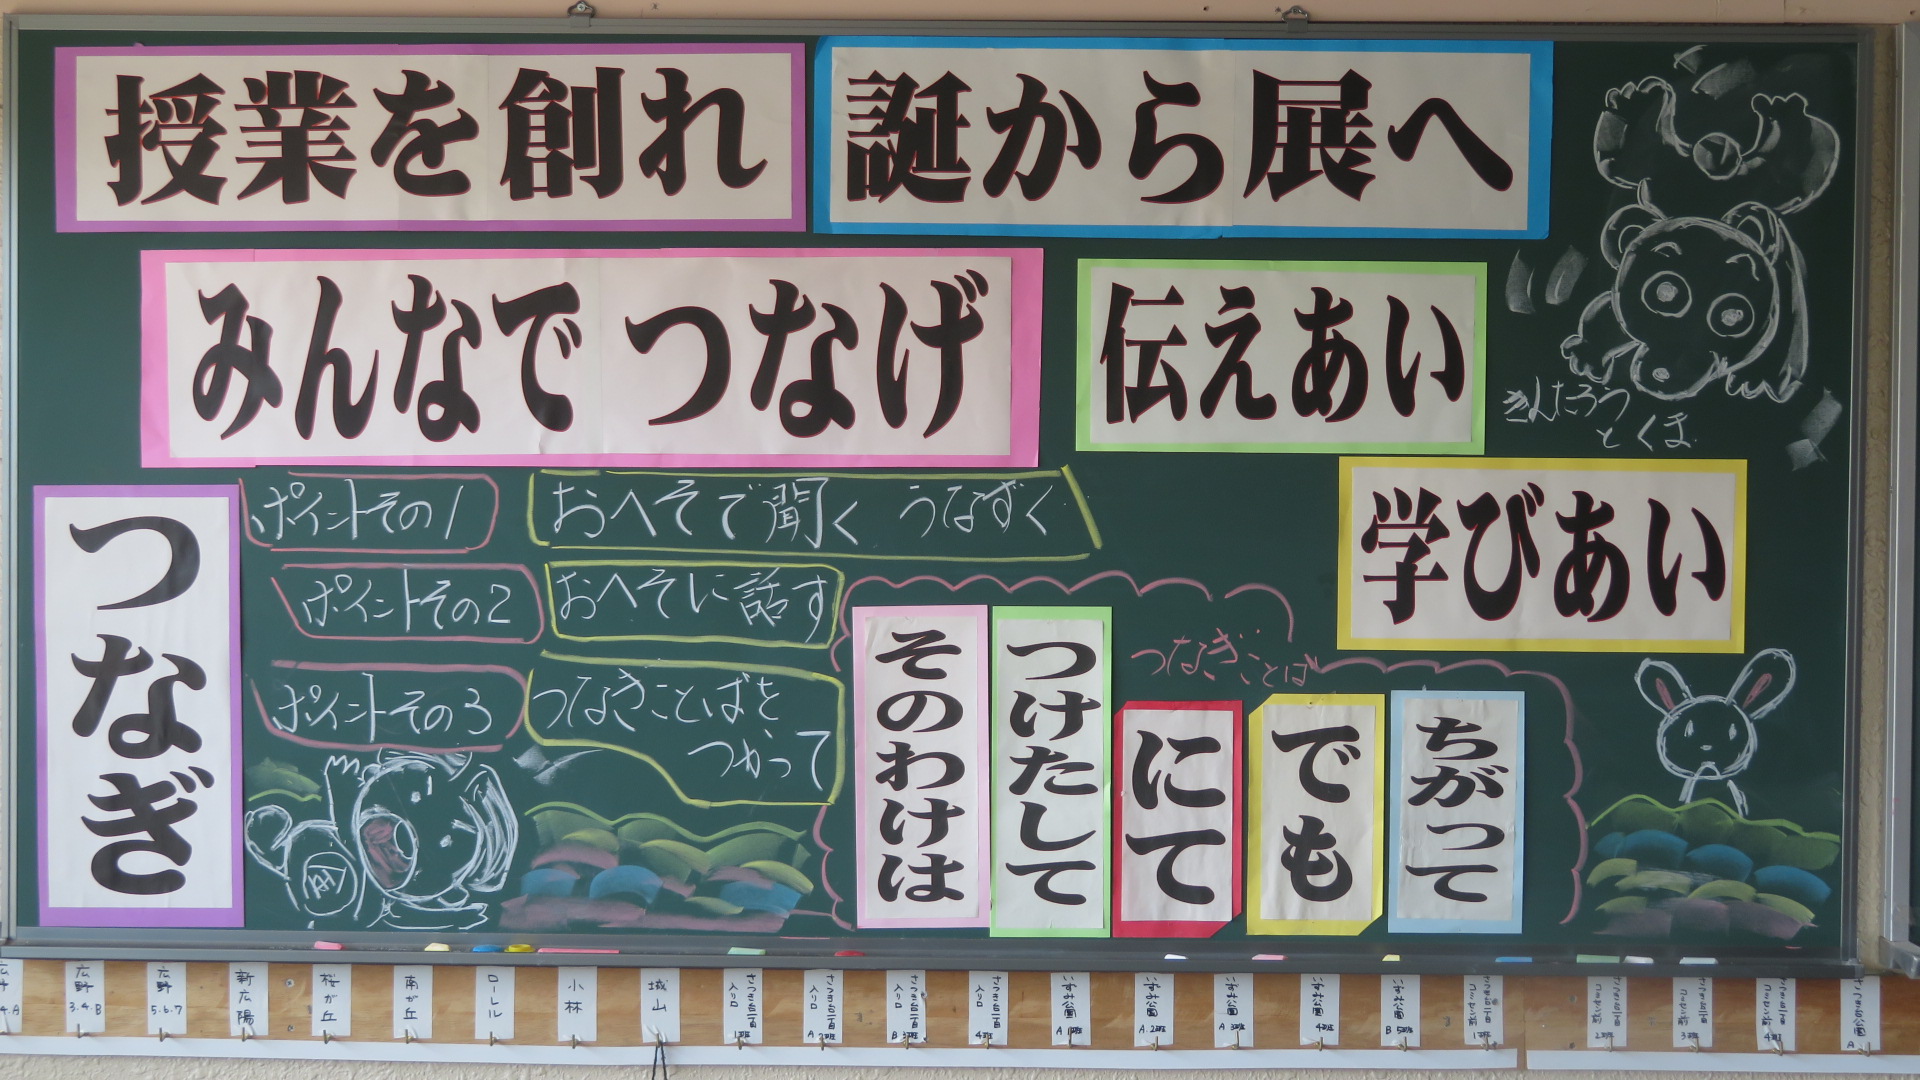 授業を創れ
誕から展へ
みんなで つなげ
伝えあい
学びあい
きんたろう
とくま
つなぎ
ポイントその1
おへそで聞く うなずく
ポイントその2
おへそに話す
ポイントその3
つなぎことばを
つかって
つなぎことば
そのわけは
つけたして
にて
でも
ちがって
広野
3.4.B
広野
5.6.7
新広陽
桜が丘
南が丘
ロールル
小林
城山
さつき台一丁目
入り口
1班
さつき台一丁目
入り口
A 2班
さつき台一丁目
入り口
B 3班
さつき台一丁目
入り口
4班
いずみ公園
A 1班
いずみ公園
A 2班
いずみ公園
A 3班
いずみ公園
4班
いずみ公園
B 5班
1班
2班
3班
4班
さつき台公園
A